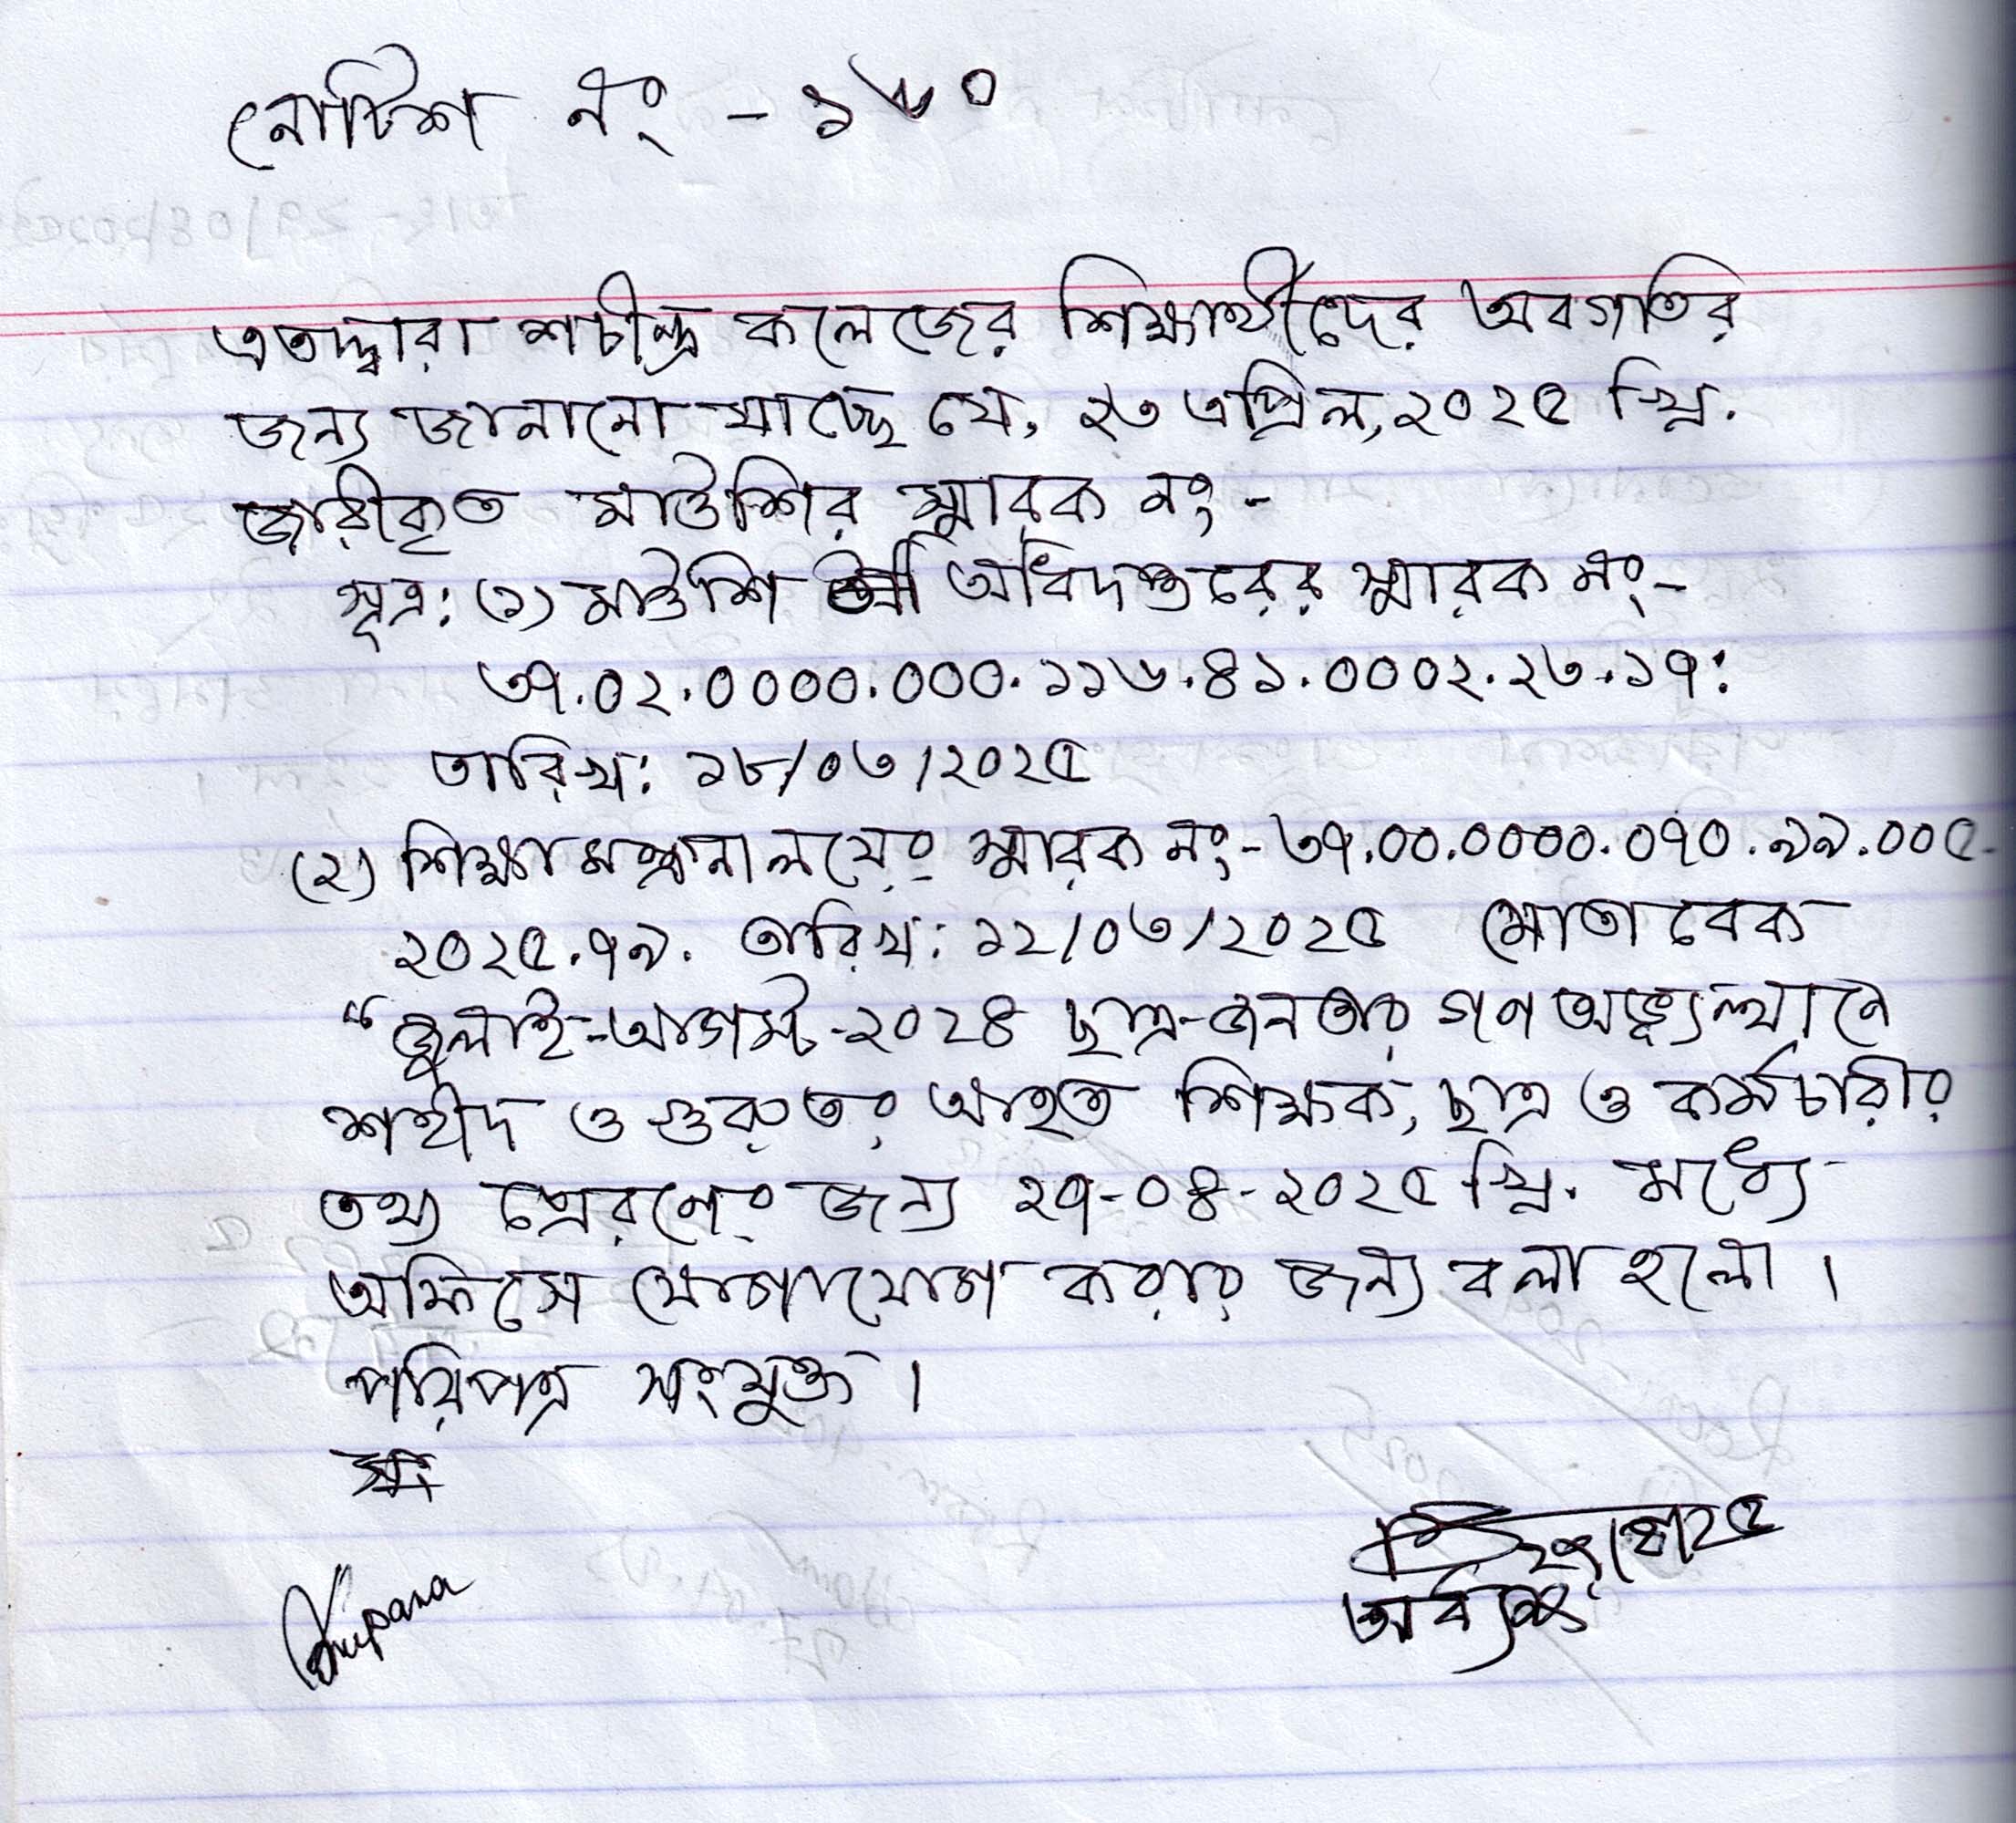 নোটিশ নং - ১৬০
এতদ্দ্বারা শচীন্দ্র কলেজের শিক্ষার্থীদের অবগতির
জন্য জানানো যাচ্ছে যে, ২৩ এপ্রিল, ২০২৫ খ্রি.
জারীকৃত মাউশির স্মারক নং-
সূত্র: (১) মাউশি অধিদপ্তরের স্মারক নং-
৩৭.০২.০০০০.০০০.১১৬.৪১.০০০২.২৩.১৭:
তারিখ: ১৮/০৩/২০২৫
(২) শিক্ষা মন্ত্রনালয়ের স্মারক নং-৩৭.০০.০০০০.০৭০.৯৯.০০৫.
২০২৫.৭৯. তারিখ: ১২/০৩/২০২৫ মোতাবেক
“জুলাই-আগস্ট-২০২৪ ছাত্র-জনতার গণ অভ্যুত্থানে
শহীদ ও গুরুতর আহত শিক্ষক, ছাত্র ও কর্মচারীর
তথ্য প্রেরণের জন্য ২৭-০৪-২০২৫ খ্রি. মধ্যে
অফিসে যোগাযোগ করার জন্য বলা হলো।
পরিপত্র সংযুক্ত।
অধ্যক্ষ